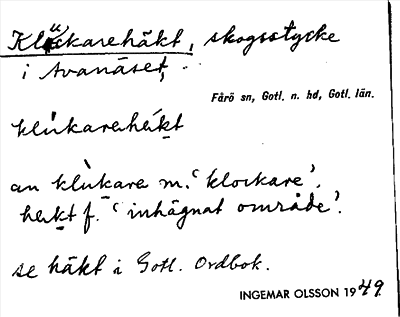 Kluckarehäkt, skogsstycke
i Avanäset,
Fårö sn, Gotl. n. hd, Gotl. län.
klùkarehèkt
an klùkare m. 'klockare'.
hèkt f. 'inhägnat område'.
se häkt i Gotl. Ordbok.
INGEMAR OLSSON 1949